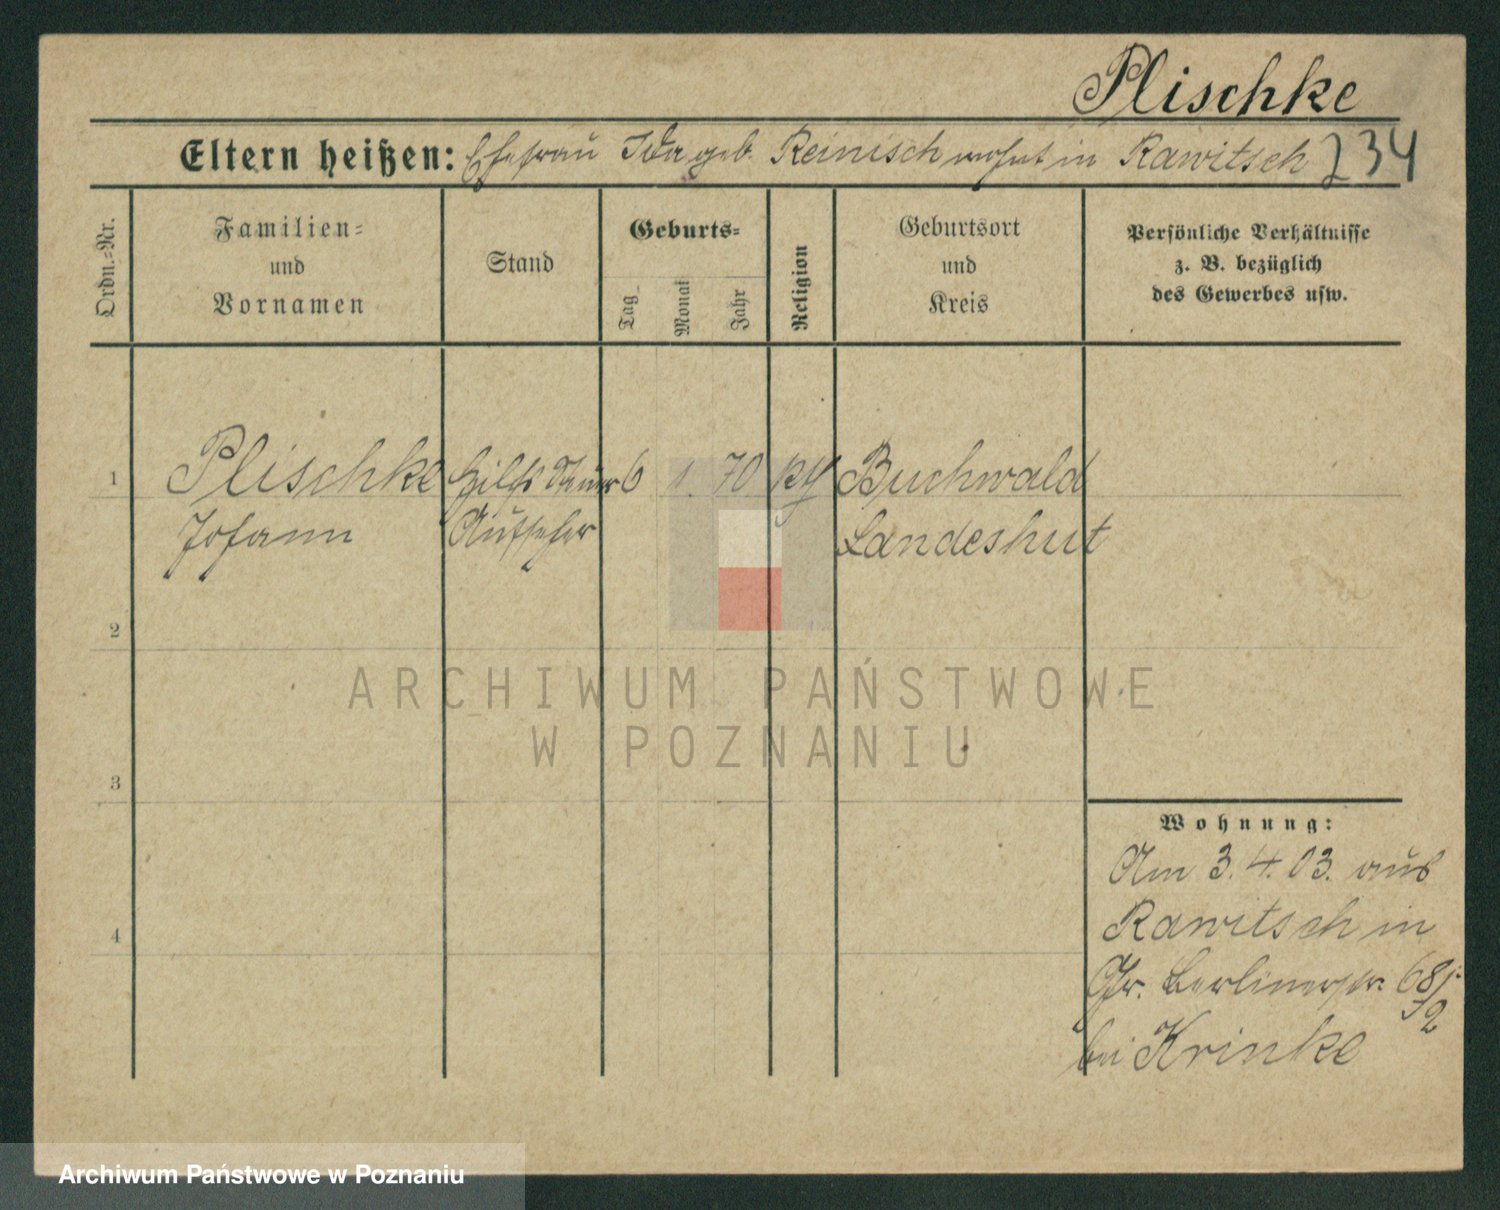 Plischke
Eltern heißen: Ehefrau Ida geb. Reinisch wohnt in Rawitsch 234
Ordn.-Nr.
Familien-
und
Vornamen
Stand
Geburts-
Tag
Monat
Jahr
Religion
Geburtsort
und
Kreis
Persönliche Verhältnisse
z. B. bezüglich
des Gewerbes usw.
1 Plischke Hilfs 6 1. 70 Buchwald
Johann Aufseher Landeshut
2
3
4
ARCHIWUM PAŃSTWOWE
W POZNANIU
Wohnung:
Am 3.4.03. aus
Rawitsch in
Gr. Berlinerstr. 68
bei Krinke
Archiwum Państwowe w Poznaniu